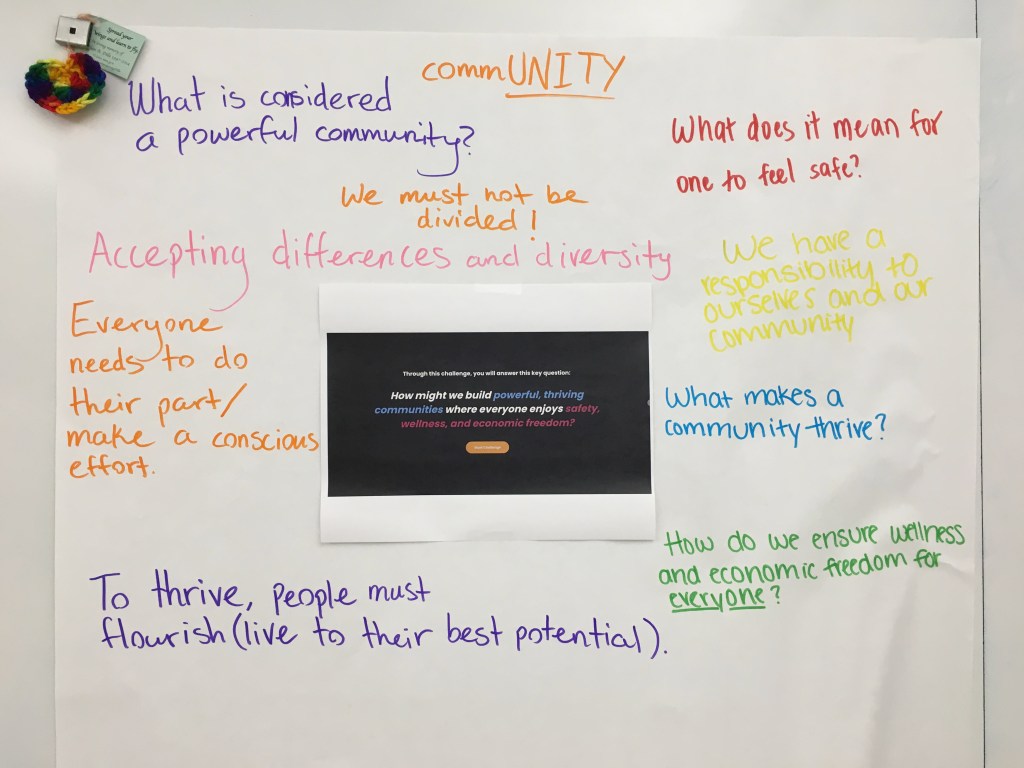 Spread your
wings and learn to fly
commUNITY
What is considered
a powerful community?
What does it mean for
one to feel safe?
We must not be
divided!
Accepting differences and diversity
We have a
responsibility to
ourselves and our
community
Everyone
needs to do
their part/
make a conscious
effort.
Through this challenge, you will answer this key question:
How might we build powerful, thriving
communities where everyone enjoys safety,
wellness, and economic freedom?
What makes a
community thrive?
How do we ensure wellness
and economic freedom for
everyone?
To thrive, people must
flourish (live to their best potential).